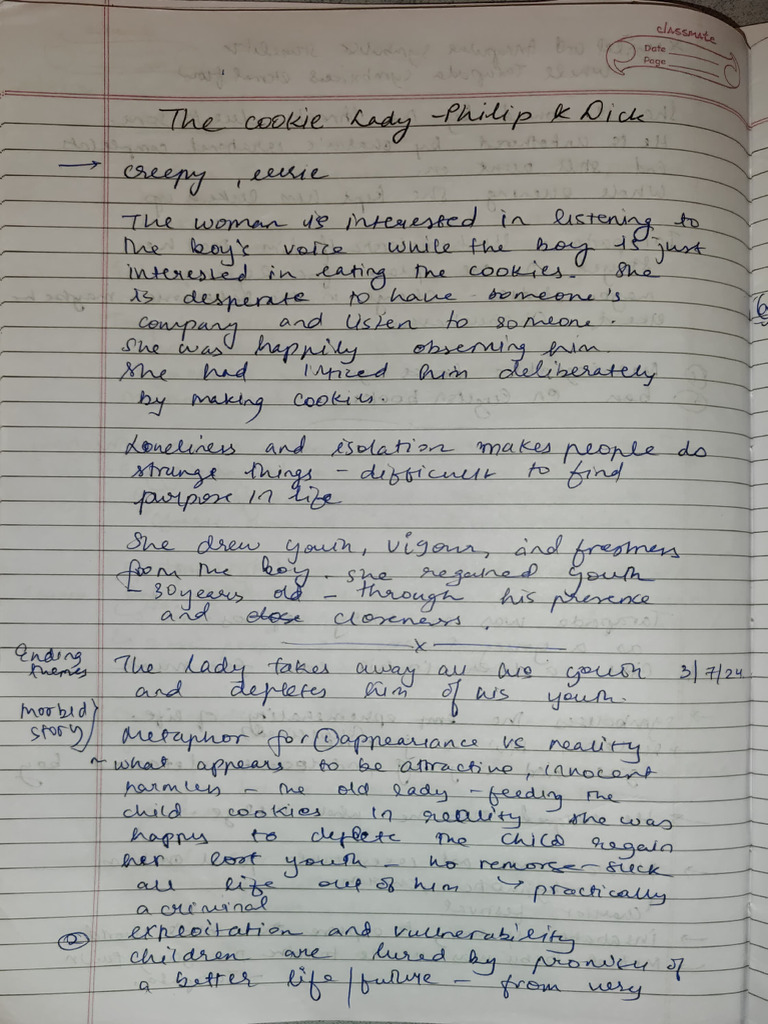 classmate
Date
Page
The cookie Lady - Philip K Dick
→ creepy, eerie
The woman is interested in listening to
the boy's voice while the boy is just
interested in eating the cookies. She
is desperate to have someone's
company and listen to someone.
She was happily observing him.
She had inticed him deliberately
by making cookies.
Loneliness and isolation makes people do
strange things - difficult to find
purpose in life
She drew youth, vigour, and freshness
from the boy. She regained youth
- 30 years old - through his presence
and close closeness.
x
Ending themes
The Lady takes away all his youth 3/7/24
and depletes him of his youth.
Morbid story}
Metaphor for ① appearance vs reality
~ what appears to be attractive, innocent
harmless - the old lady - feeding the
child cookies in reality she was
happy to deplete the child regain
her lost youth - no remorse - suck
all life out of him → practically
a criminal
② exploitation and vulnerability
children are lured by promises of
a better life / future - from very